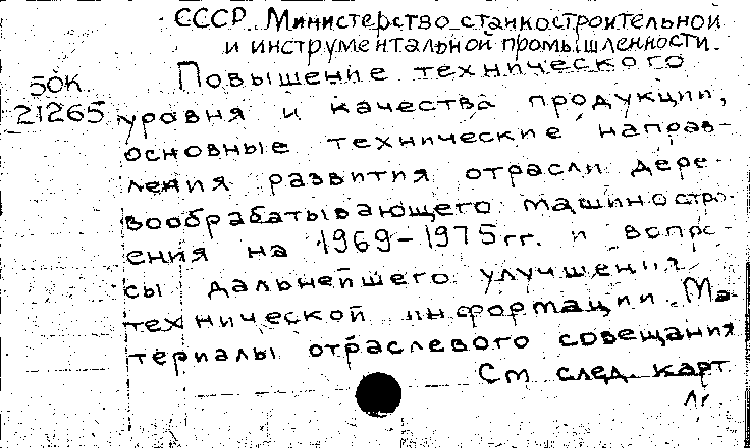 СССР. Министерство станкостроительной
и инструментальной промышленности.
50К
21265
Повышение технического
уровня и качества продукции,
основные технические направ-
ления развития отрасли дере-
вообрабатывающего машиностро-
ения на 1969-1975гг. и вопро-
сы дальнейшего улучшения
технической информации. Ма-
териалы отраслевого совещания
См след. карт.